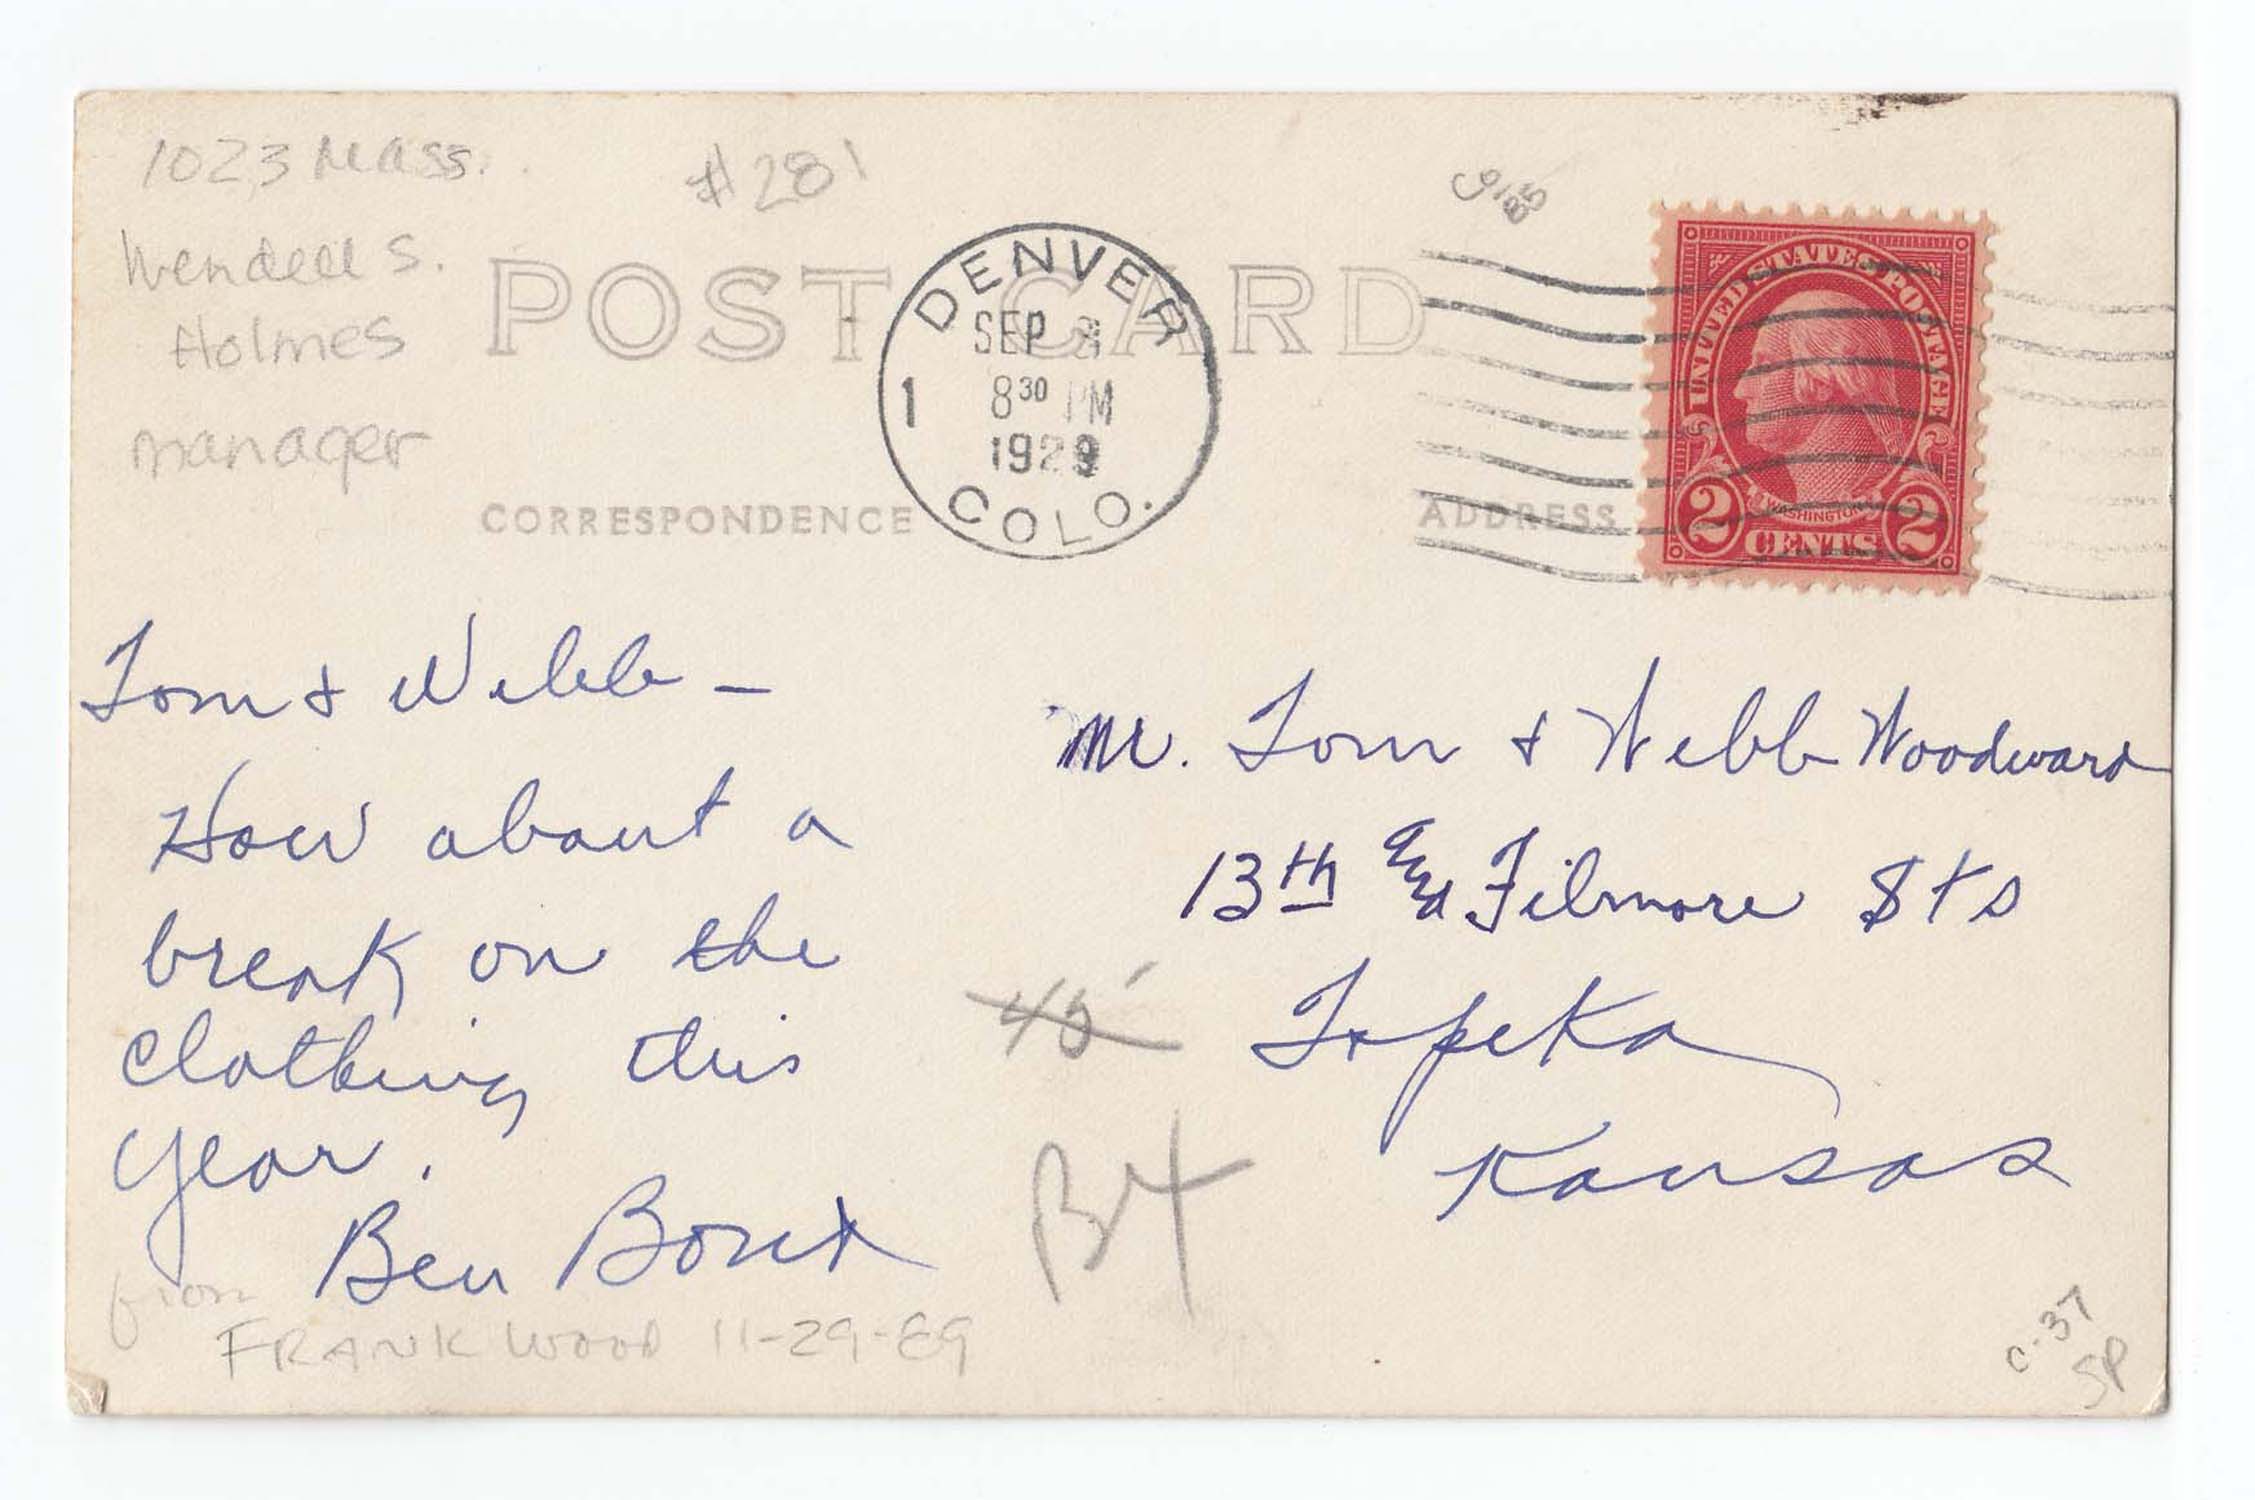 1023 Mass.
Wendell S.
Holmes
manager
#281
POST CARD
DENVER
SEP
8 30 PM
1929
1
COLO.
CORRESPONDENCE
ADDRESS
UNITED STATES POSTAGE
WASHINGTON
2 CENTS 2
Tom & Webb –
How about a
break on the
clothing this
year.
Ben Bond
from
FRANK WOOD 11-29-89
Mr. Tom & Webb Woodward
13th and Filmore Sts
Topeka
Kansas
45
B4
C-37
SP